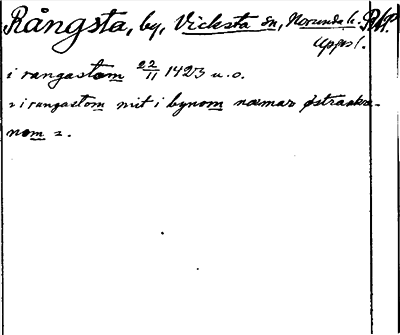 Rångsta, by, Vicksta sn, Norunda h. RAP.
Uppsl.
i rangastom 22/11 1423 u. o.
= i rangastom mit i bynom næmar østraakre-
nom =.